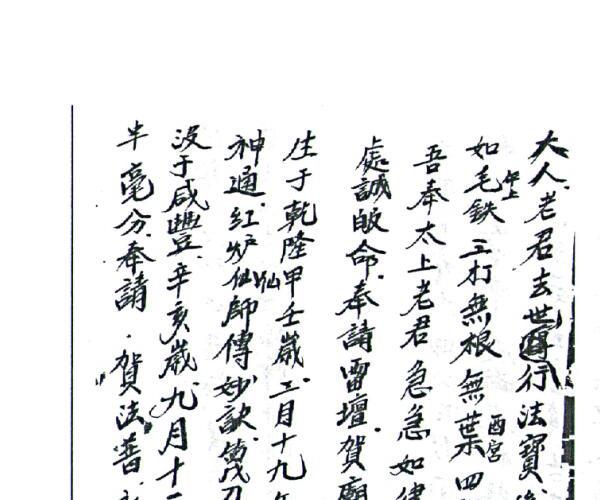 大人老君去世行法寶
如毛鉄三打無根無葉四
酉宮
吾奉太上老君急急如律
處誠皈命奉請雷壇賀廟
生于乾隆甲壬歲二月十九年
神通紅炉仙師傳妙訣萬刀
仙
没于咸豐辛亥歲九月十二
半毫分奉請賀法普